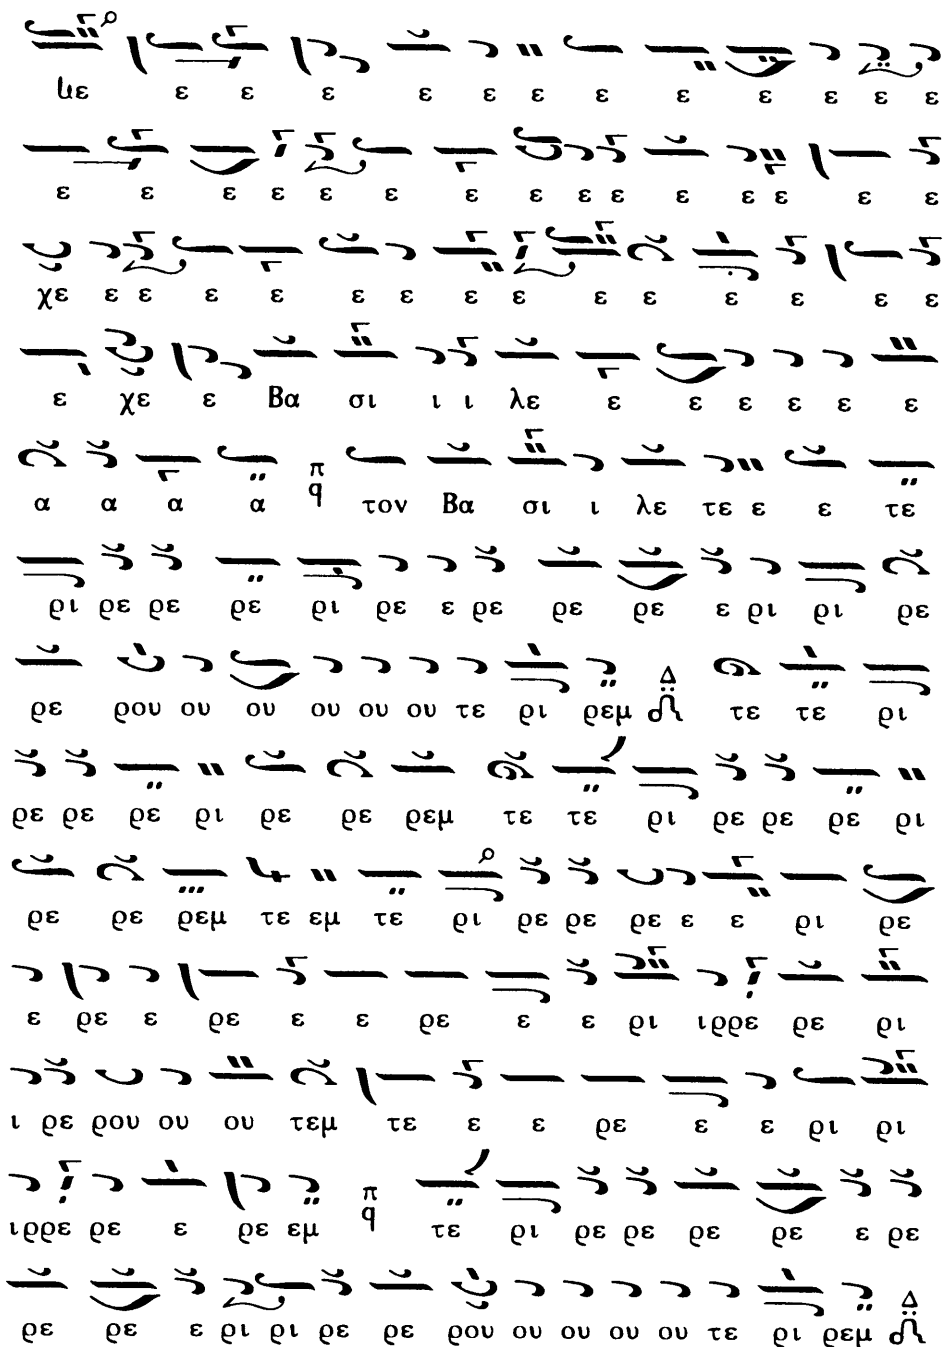 με ε ε ε ε ε ε ε ε ε ε ε ε
ε ε ε ε ε ε ε ε ε ε ε ε ε ε ε
χε ε ε ε ε ε ε ε ε ε ε ε ε ε ε
ε χε ε Βα σι ι ι λε ε ε ε ε ε ε
α α α α π q τον Βα σι ι λε τε ε ε τε
ρι ρε ρε ρε ρι ρε ε ρε ρε ρε ε ρι ρι ρε
ρε ρου ου ου ου ου ου τε ρι ρεμ Δ τε τε ρι
ρε ρε ρε ρι ρε ρε ρεμ τε τε ρι ρε ρε ρε ρι
ρε ρε ρεμ τε εμ τε ρι ρε ρε ρε ε ε ρι ρε
ε ρε ε ρε ε ε ρε ε ε ρι ιρρε ρε ρι
ι ρε ρου ου ου τεμ τε ε ε ρε ε ε ρι ρι
ιρρε ρε ε ρε εμ π q τε ρι ρε ρε ρε ρε ε ρε
ρε ρε ε ρι ρι ρε ρε ρου ου ου ου ου τε ρι ρεμ Δ